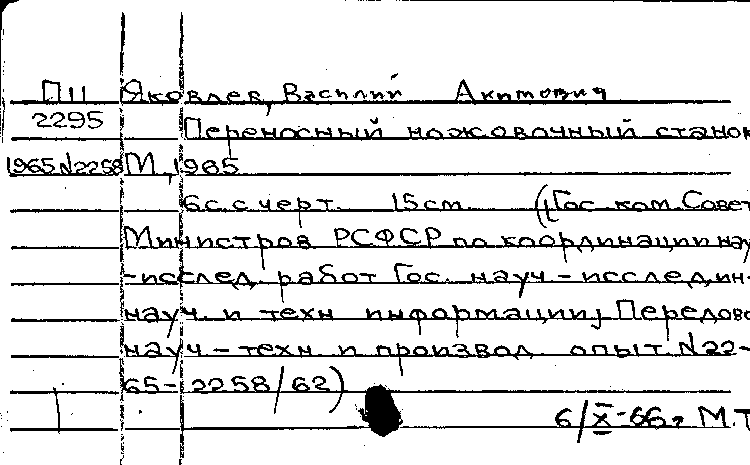 П11 Яковлев, Василий Акимович
2295 Переносный ножовочный станок
1965 N2258 М., 1965
6с. с черт. 15см. ((Гос. ком. Совет
Министров РСФСР по координации нау
-исслед. работ Гос. науч-исслед. ин-
науч. и техн информации; Передово
науч-техн. и производ. опыт. N22-
65-2258/62)
6/X-66г М.Т